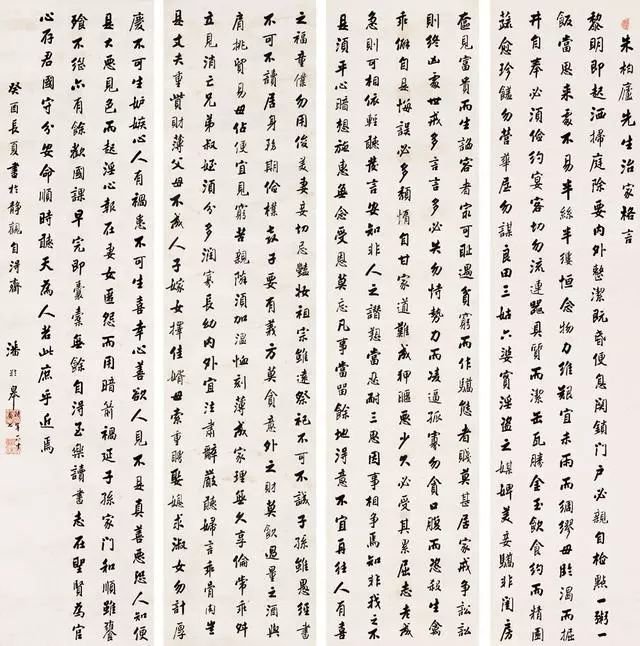 朱柏廬先生治家格言
黎明即起洒掃庭除要內外整潔既昏便息關鎖門戶必親自檢點一粥一
飯當思來處不易半絲半縷恒念物力維艱宜未雨而綢繆毋臨渴而掘
井自奉必須儉約宴客切勿流連器具質而潔缶瓦勝金玉飲食約而精園
蔬愈珍饈勿營華屋勿謀良田三姑六婆實淫盜之媒婢美妾嬌非閨房
奩見富貴而生諂容者最可耻遇貧窮而作驕態者賤莫甚居家戒爭訟訟
則終凶處世戒多言言多必失勿恃勢力而凌逼孤寡勿貪口腹而恣殺生禽
乖僻自是悔誤必多頹惰自甘家道難成狎暱惡少久必受其累屈志老成
急則可相依輕聽發言安知非人之譖愬當忍耐三思因事相爭焉知非我之不
是須平心暗想施惠無念受恩莫忘凡事當留餘地得意不宜再往人有喜
之福童僕勿用俊美妻妾切忌艷妝祖宗雖遠祭祀不可不誠子孫雖愚經書
不可不讀居身務期儉樸教子要有義方莫貪意外之財莫飲過量之酒與
肩挑貿易毋佔便宜見窮苦親鄰須加溫恤刻薄成家理無久享倫常乖舛
立見消亡兄弟叔姪須分多潤寡長幼內外宜法肅辭嚴聽婦言乖骨肉豈
是丈夫重貲財薄父母不成人子嫁女擇佳婿毋索重聘娶媳求淑女勿計厚
慶不可生妒嫉心人有禍患不可生喜幸心善欲人見不是真善惡恐人知便
是大惡見色而起淫心報在妻女匿怨而用暗箭禍延子孫家門和順雖饔
飧不繼亦有餘歡國課早完即囊橐無餘自得至樂讀書志在聖賢為官
心存君國守分安命順時聽天為人若此庶乎近焉
癸酉長夏書於靜觀自得齋 潘齡皋